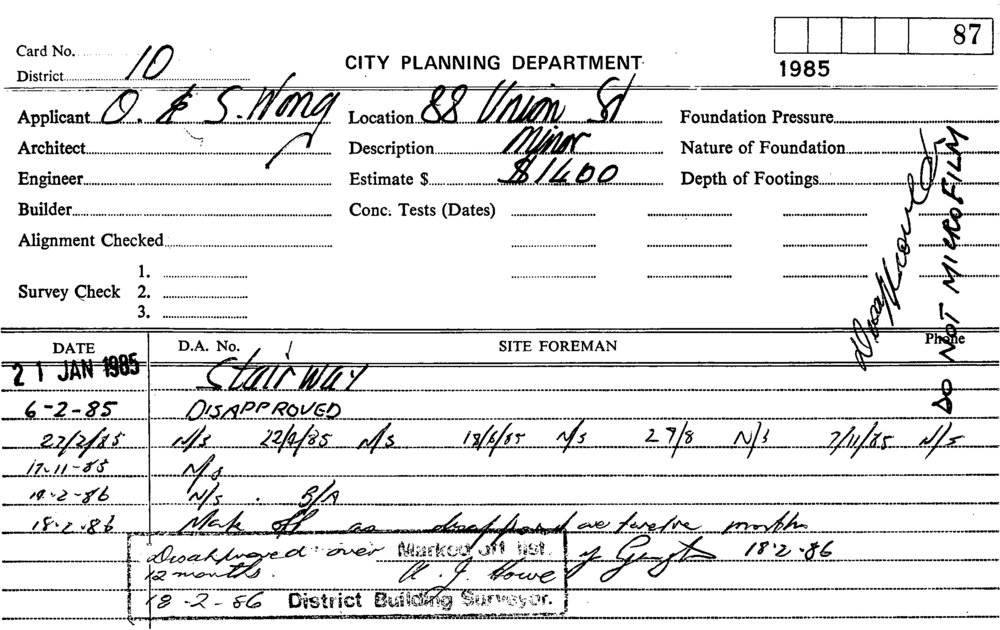 87
1985
Card No.
District 10
CITY PLANNING DEPARTMENT
Applicant O. & S. Wong
Location 88 Union St
Foundation Pressure
Architect
Description Minor
Nature of Foundation
Engineer
Estimate $ $1400
Depth of Footings
Builder
Conc. Tests (Dates)
Alignment Checked
1.
Survey Check 2.
3.
Disapproved
DO NOT MICROFILM
DATE D.A. No. SITE FOREMAN Phone
21 JAN 1985 Stairway
6-2-85 DISAPPROVED
22/2/85 N/s 22/4/85 N/s 18/6/85 N/s 27/8 N/s 7/11/85 N/s
17-11-85 N/s
19-2-86 N/s. B/A
18-2-86 Mark off as disapproved twelve months
18-2-86
Disapproved over Marked off list.
12 months. A. J. Howe
18-2-86 District Building Surveyor.